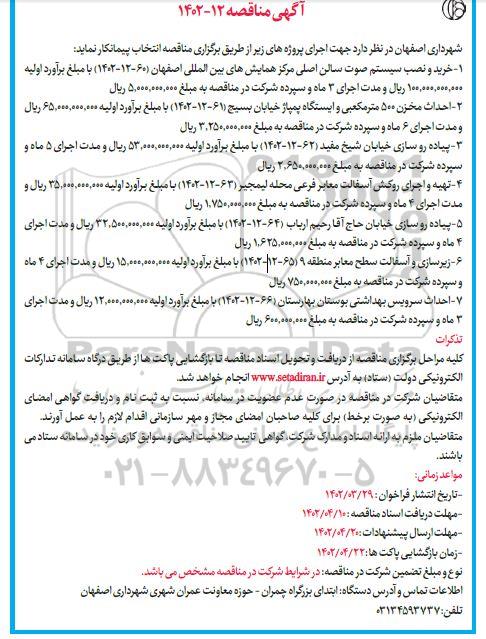 آگهی مناقصه ۱۲-۱۴۰۲
شهرداری اصفهان در نظر دارد جهت اجرای پروژه های زیر از طریق برگزاری مناقصه انتخاب پیمانکار نماید:
۱-خرید و نصب سیستم صوت سالن اصلی مرکز همایش های بین المللی اصفهان (۶۰-۱۲-۱۴۰۲) با مبلغ برآورد اولیه
۱۰۰,۰۰۰,۰۰۰,۰۰۰ ریال و مدت اجرای ۳ ماه و سپرده شرکت در مناقصه به مبلغ ۵,۰۰۰,۰۰۰,۰۰۰ ریال
۲-احداث مخزن ۵۰۰ مترمکعبی و ایستگاه پمپاژ خیابان بسیج (۶۱-۱۲-۱۴۰۲) با مبلغ برآورد اولیه ۶۵,۰۰۰,۰۰۰,۰۰۰ ریال
و مدت اجرای ۶ ماه و سپرده شرکت در مناقصه به مبلغ ۳,۲۵۰,۰۰۰,۰۰۰ ریال
۳-پیاده رو سازی خیابان شیخ مفید (۶۲-۱۲-۱۴۰۲) با مبلغ برآورد اولیه ۵۳,۰۰۰,۰۰۰,۰۰۰ ریال و مدت اجرای ۵ ماه و
سپرده شرکت در مناقصه به مبلغ ۲,۶۵۰,۰۰۰,۰۰۰ ریال
۴-تهیه و اجرای روکش آسفالت معابر فرعی محله لیمجیر (۶۳-۱۲-۱۴۰۲) با مبلغ برآورد اولیه ۳۵,۰۰۰,۰۰۰,۰۰۰ ریال و
مدت اجرای ۴ ماه و سپرده شرکت در مناقصه به مبلغ ۱,۷۵۰,۰۰۰,۰۰۰ ریال
۵-پیاده رو سازی خیابان حاج آقا رحیم ارباب (۶۴-۱۲-۱۴۰۲) با مبلغ برآورد اولیه ۳۲,۵۰۰,۰۰۰,۰۰۰ ریال و مدت اجرای
۴ ماه و سپرده شرکت در مناقصه به مبلغ ۱,۶۲۵,۰۰۰,۰۰۰ ریال
۶-زیرسازی و آسفالت سطح معابر منطقه ۹ (۶۵-۱۲-۱۴۰۲) با مبلغ برآورد اولیه ۱۵,۰۰۰,۰۰۰,۰۰۰ ریال و مدت اجرای ۴ ماه
و سپرده شرکت در مناقصه به مبلغ ۷۵۰,۰۰۰,۰۰۰ ریال
۷-احداث سرویس بهداشتی بوستان بهارستان (۶۶-۱۲-۱۴۰۲) با مبلغ برآورد اولیه ۱۲,۰۰۰,۰۰۰,۰۰۰ ریال و مدت اجرای
۳ ماه و سپرده شرکت در مناقصه به مبلغ ۶۰۰,۰۰۰,۰۰۰ ریال
تذکرات
کلیه مراحل برگزاری مناقصه از دریافت و تحویل اسناد مناقصه تا بازگشایی پاکت ها از طریق درگاه سامانه تدارکات
الکترونیکی دولت (ستاد) به آدرس www.setadiran.ir انجام خواهد شد.
متقاضیان شرکت در مناقصه در صورت عدم عضویت در سامانه، نسبت به ثبت نام و دریافت گواهی امضای
الکترونیکی (به صورت برخط) برای کلیه صاحبان امضای مجاز و مهر سازمانی اقدام لازم را به عمل آورند.
متقاضیان ملزم به ارائه اسناد و مدارک شرکت، گواهی تایید صلاحیت ایمنی و سوابق کاری خود در سامانه ستاد می
باشند.
مواعد زمانی:
-تاریخ انتشار فراخوان : ۱۴۰۲/۰۳/۲۹
-مهلت دریافت اسناد مناقصه : ۱۴۰۲/۰۴/۱۰
-مهلت ارسال پیشنهادات : ۱۴۰۲/۰۴/۲۰
-زمان بازگشایی پاکت ها : ۱۴۰۲/۰۴/۲۲
نوع و مبلغ تضمین شرکت در مناقصه: در شرایط شرکت در مناقصه مشخص می باشد.
اطلاعات تماس و آدرس دستگاه: ابتدای بزرگراه چمران - حوزه معاونت عمران شهری شهرداری اصفهان
تلفن: ۰۳۱۳۴۵۹۳۷۳۷
ParsNamadData
۰۲۱-۸۸۳۴۹۶۷۰-۵